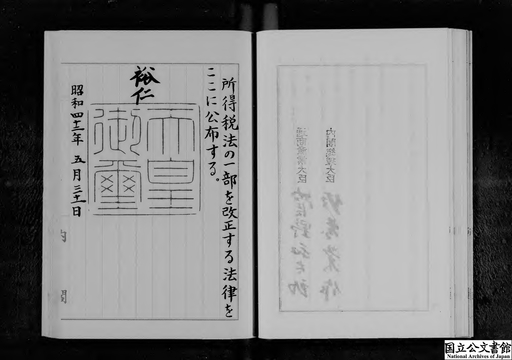 所得税法の一部を改正する法律を
ここに公布する。
裕仁
天皇
御璽
昭和四十三年 五月三十一日
内閣
内閣総理大臣
佐藤榮作
国立公文書館
National Archives of Japan